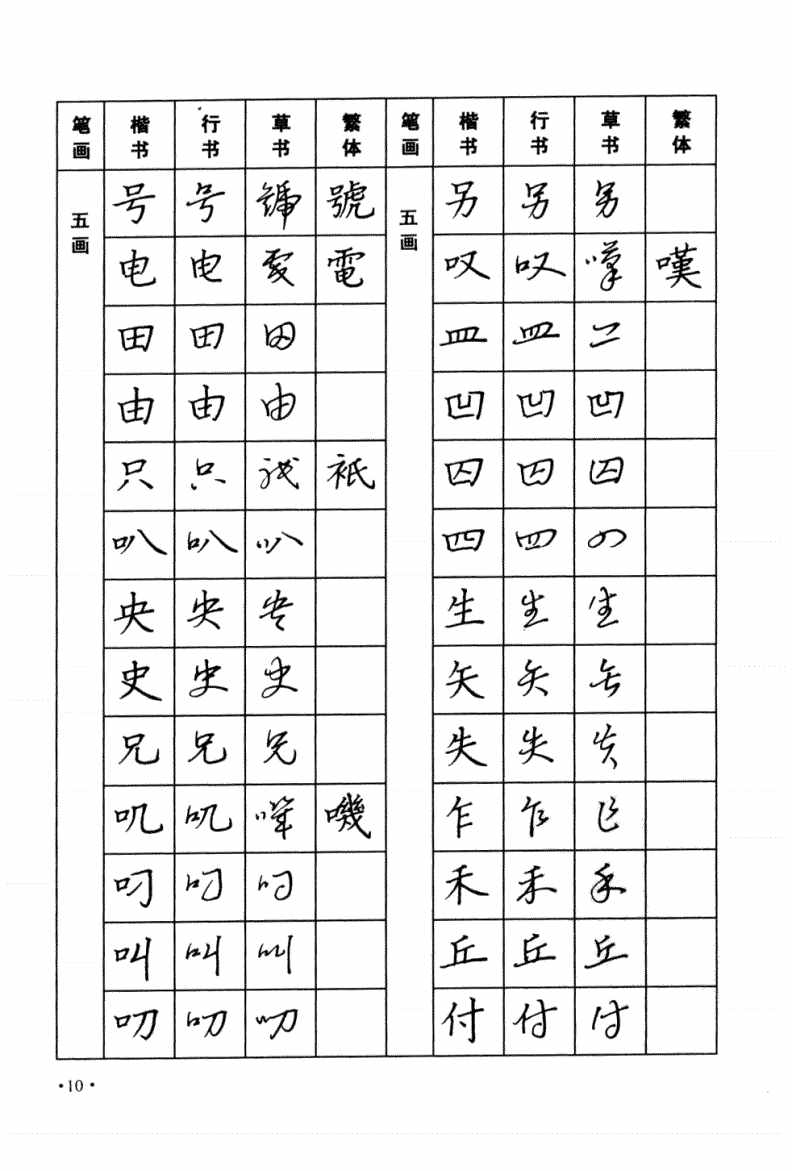 笔画 楷书 行书 草书 繁体 笔画 楷书 行书 草书 繁体
五画 号 号 号 號 五画 另 另 另
电 电 电 電 叹 叹 叹 嘆
田 田 田 皿 皿 皿
由 由 由 凹 凹 凹
只 只 只 衹 囚 囚 囚
叭 叭 叭 四 四 四
央 央 央 生 生 生
史 史 史 矢 矢 矢
兄 兄 兄 失 失 失
叽 叽 叽 嘰 乍 乍 乍
叼 叼 叼 禾 禾 禾
叫 叫 叫 丘 丘 丘
叨 叨 叨 付 付 付
·10·